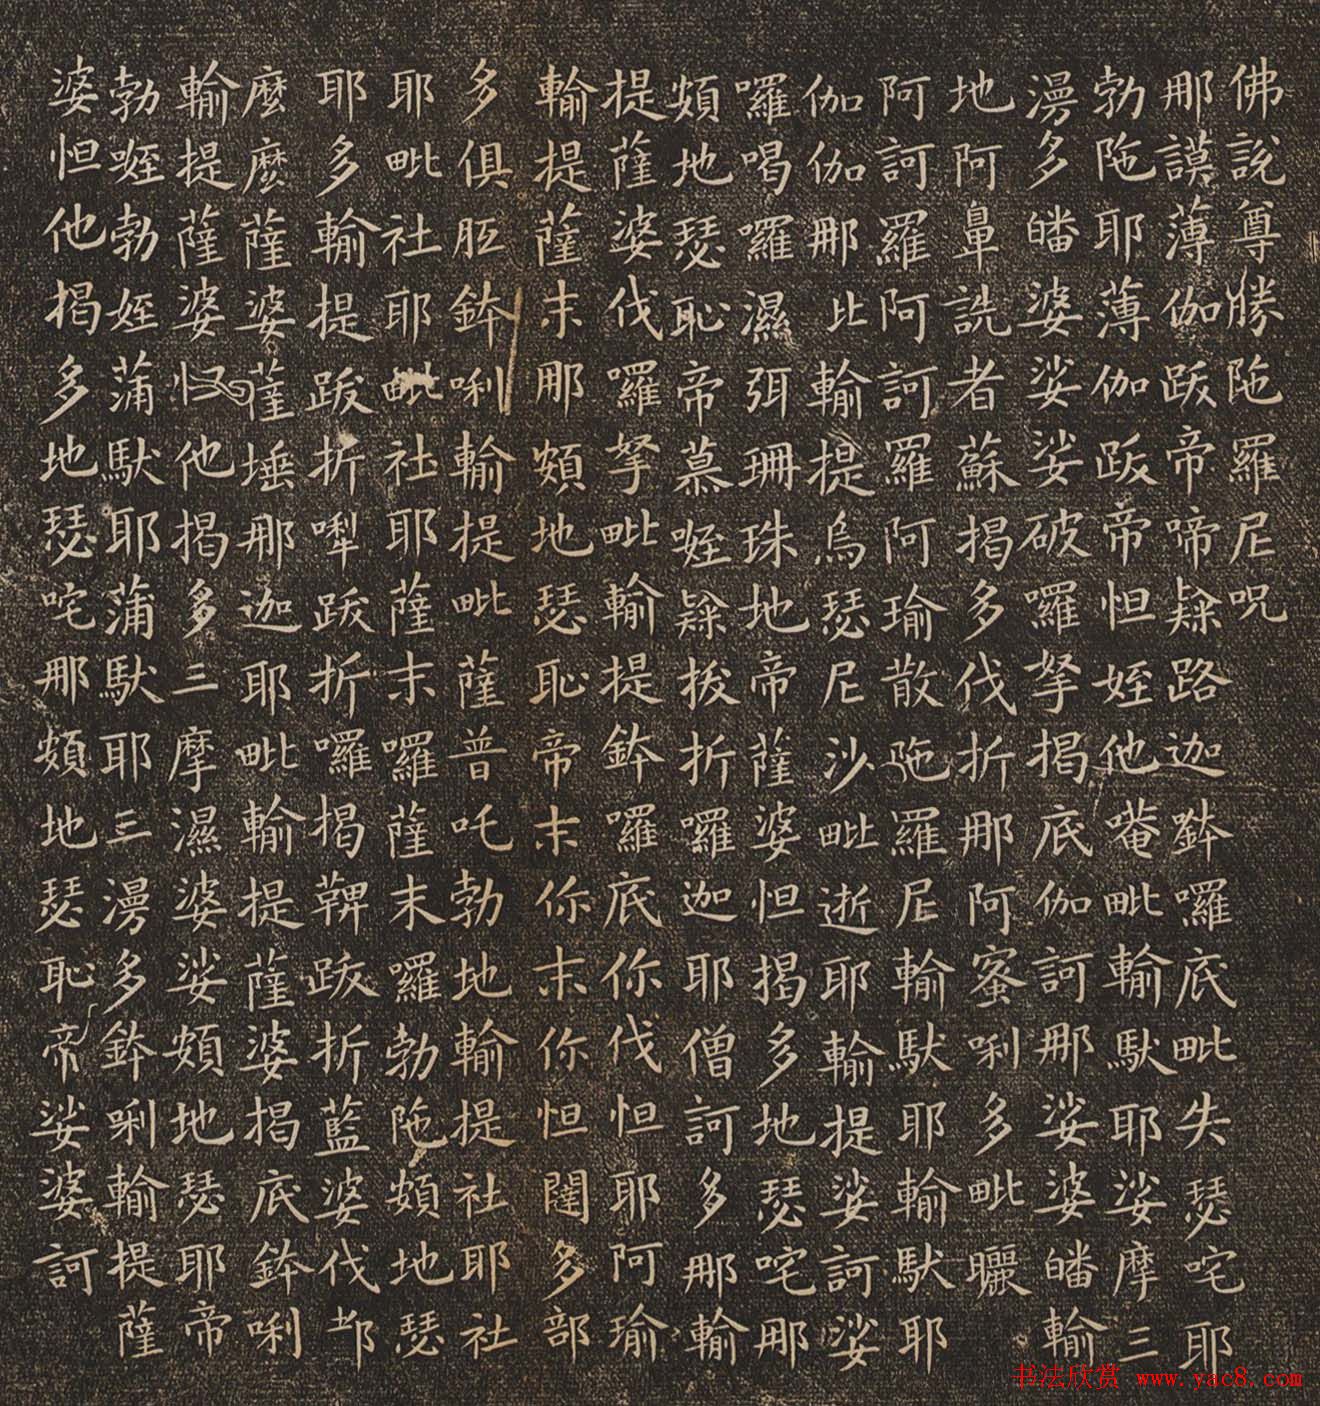 佛說尊勝陁羅尼呪
那謨薄伽跋帝啼隸路迦鉢囉底毗失瑟咤耶
勃陁耶薄伽跋帝怛姪他唵毗輸馱耶娑摩三
漫多皤婆娑娑破囉拏揭底伽訶那娑婆皤輸
地阿鼻詵者蘇揭多伐折那阿蜜唎多毗曬
阿訶羅阿訶羅阿瑜散陁羅尼輸馱耶輸馱耶
伽伽那比輸提烏瑟尼沙毗逝耶輸提娑訶娑
囉喝囉濕弭珊珠地帝薩婆怛揭多地瑟咤那
頞地瑟恥帝慕姪隸拔折囉迦耶僧訶多那輸
提薩婆伐囉拏毗輸提鉢囉底你伐怛耶阿瑜
輸提薩末那頞地瑟恥帝末你末你怛闥多部
多俱胝鉢唎輸提毗薩普吒勃地輸提社耶社
耶毗社耶毗社耶薩末囉薩末囉勃陁頞地瑟
耶多輸提跋折犁跋折囉揭鞞跋折藍婆伐都
麼麼薩婆薩埵那迦耶毗輸提薩婆揭底鉢唎
輸提薩婆怛他揭多三摩濕婆娑頞地瑟耶帝
勃姪勃姪蒲馱耶蒲馱耶三漫多鉢唎輸提薩
婆怛他揭多地瑟咤那頞地瑟恥帝娑婆訶
书法欣赏 www.yac8.com